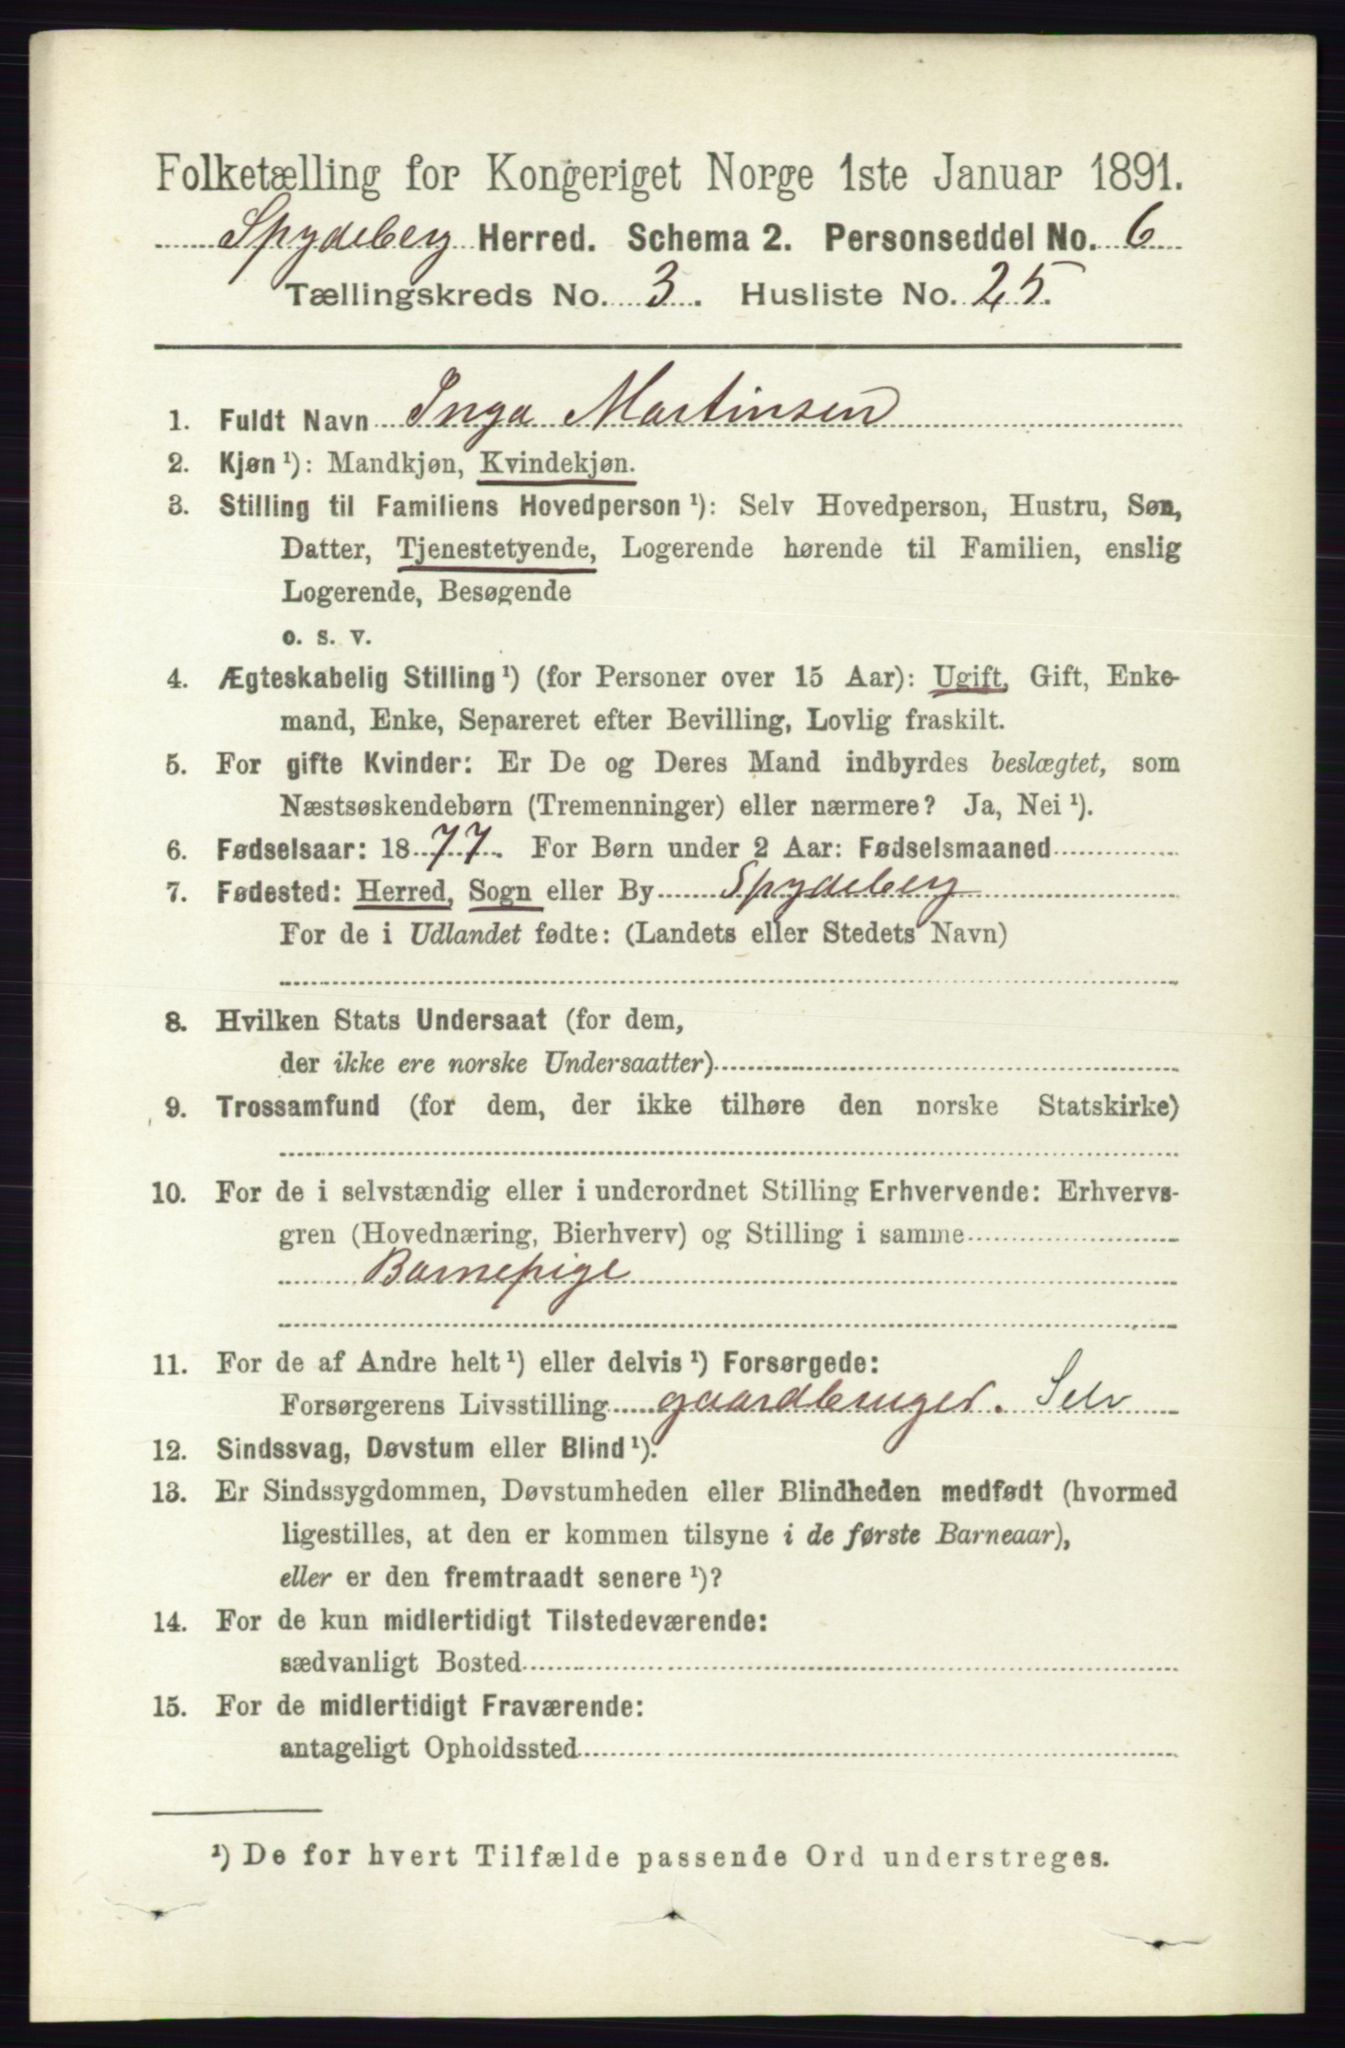 Folketælling for Kongeriget Norge 1ste Januar 1891.
Spydeberg Herred. Schema 2. Personseddel No. 6
Tællingskreds No. 3. Husliste No. 25.
1. Fuldt Navn Inga Martinsen
2. Kjøn¹): Mandkjøn, Kvindekjøn.
3. Stilling til Familiens Hovedperson¹): Selv Hovedperson, Hustru, Søn,
Datter, Tjenestetyende, Logerende hørende til Familien, enslig
Logerende, Besøgende
o. s. v.
4. Ægteskabelig Stilling¹) (for Personer over 15 Aar): Ugift, Gift, Enke-
mand, Enke, Separeret efter Bevilling, Lovlig fraskilt.
5. For gifte Kvinder: Er De og Deres Mand indbyrdes beslægtet, som
Næstsøskendebørn (Tremenninger) eller nærmere? Ja, Nei¹).
6. Fødselsaar: 1877. For Børn under 2 Aar: Fødselsmaaned
7. Fødested: Herred, Sogn eller By Spydeberg
For de i Udlandet fødte: (Landets eller Stedets Navn)
8. Hvilken Stats Undersaat (for dem,
der ikke ere norske Undersaatter)
9. Trossamfund (for dem, der ikke tilhøre den norske Statskirke)
10. For de i selvstændig eller i underordnet Stilling Erhvervende: Erhvervs-
gren (Hovednæring, Bierhverv) og Stilling i samme
Barnepige
11. For de af Andre helt¹) eller delvis¹) Forsørgede:
Forsørgerens Livsstilling gaardbruger. Selv
12. Sindssvag, Døvstum eller Blind¹).
13. Er Sindssygdommen, Døvstumheden eller Blindheden medfødt (hvormed
ligestilles, at den er kommen tilsyne i de første Barneaar),
eller er den fremtraadt senere¹)?
14. For de kun midlertidigt Tilstedeværende:
sædvanligt Bosted
15. For de midlertidigt Fraværende:
antageligt Opholdssted
¹) De for hvert Tilfælde passende Ord understreges.